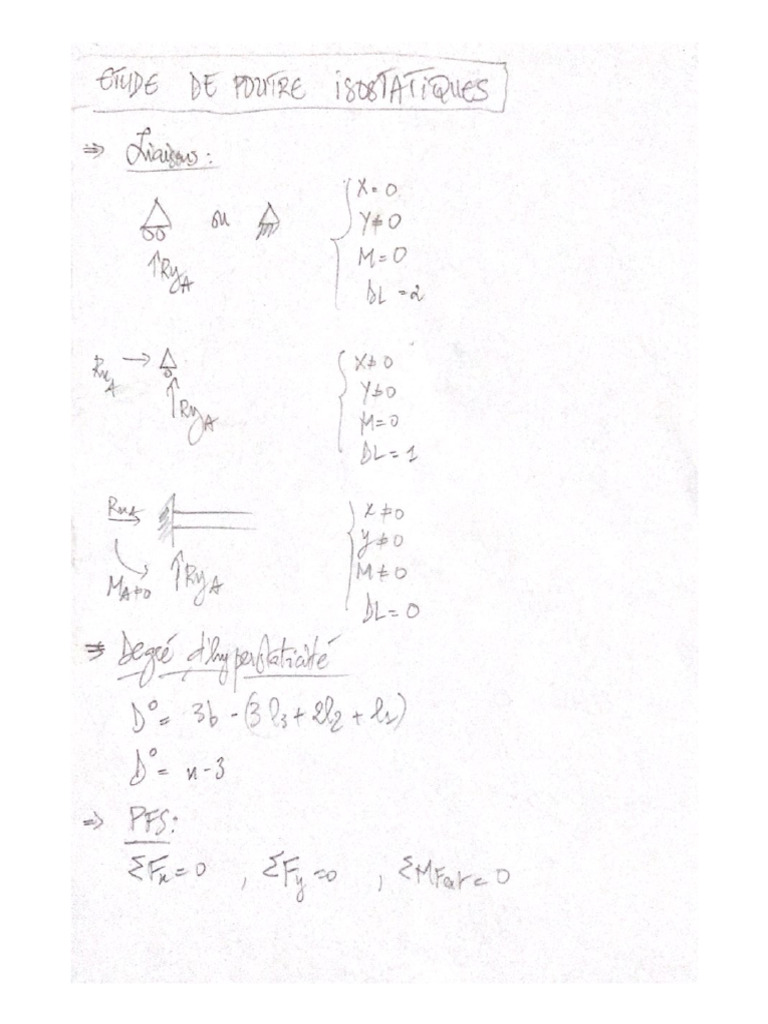 ETUDE DE POUTRE ISOSTATIQUES
⇒ Liaisons :
ou
X = 0
Y ≠ 0
M = 0
DL = 2
↑RyA
RxA →
X ≠ 0
Y ≠ 0
M = 0
DL = 1
↑RyA
RxA
x ≠ 0
y ≠ 0
M ≠ 0
DL = 0
MA≠0 ↑RyA
⇒ Degré d'hyperstaticité
D° = 3b - (3l3 + 2l2 + l1)
D° = n - 3
⇒ PFS:
ΣFx = 0 , ΣFy = 0 , ΣM = 0